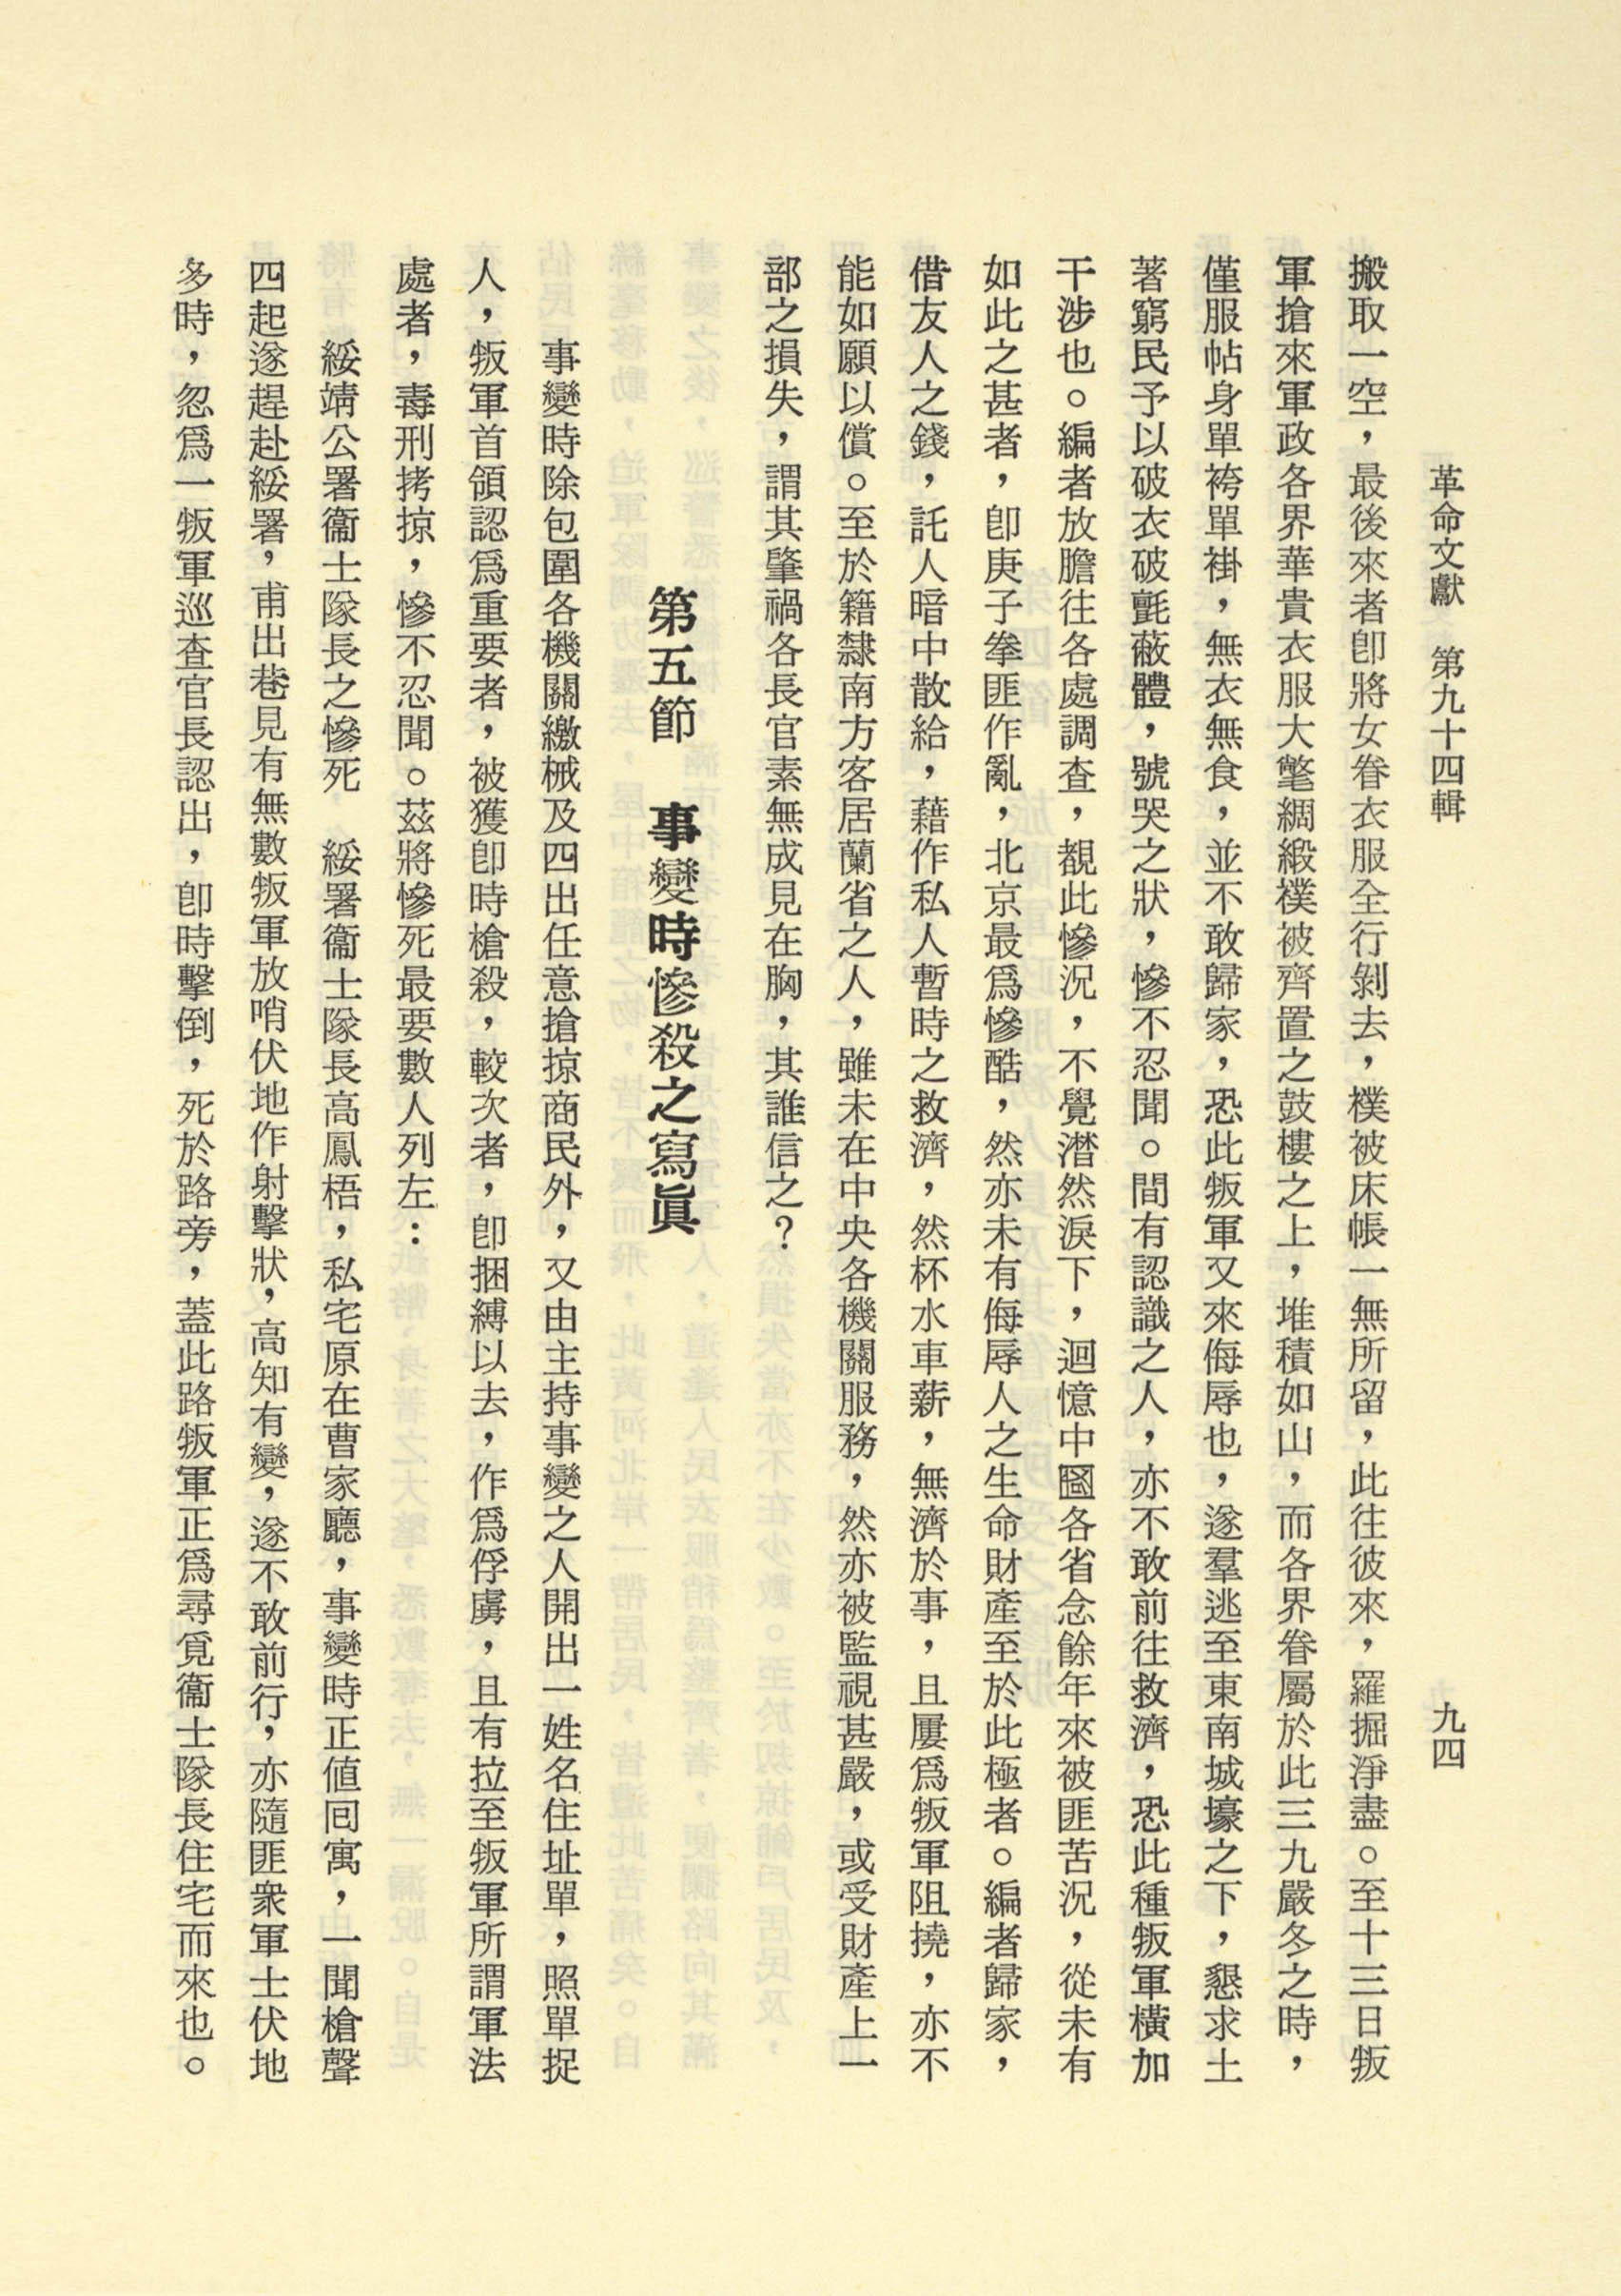 革命文獻　第九十四輯　九四
搬取一空，最後來者卽將女眷衣服全行剝去，襆被床帳一無所留，此往彼來，羅掘淨盡。至十三日叛
軍搶來軍政各界華貴衣服大氅綢緞襆被齊置之鼓樓之上，堆積如山，而各界眷屬於此三九嚴冬之時，
僅服帖身單袴單褂，無衣無食，並不敢歸家，恐此叛軍又來侮辱也，遂羣逃至東南城壕之下，懇求土
著窮民予以破衣破氈蔽體，號哭之狀，慘不忍聞。間有認識之人，亦不敢前往救濟，恐此種叛軍橫加
干涉也。編者放膽往各處調查，覩此慘況，不覺潸然淚下，迴憶中國各省念餘年來被匪苦況，從未有
如此之甚者，卽庚子拳匪作亂，北京最爲慘酷，然亦未有侮辱人之生命財產至於此極者。編者歸家，
借友人之錢，託人暗中散給，藉作私人暫時之救濟，然杯水車薪，無濟於事，且屢爲叛軍阻撓，亦不
能如願以償。至於籍隸南方客居蘭省之人，雖未在中央各機關服務，然亦被監視甚嚴，或受財產上一
部之損失，謂其肇禍各長官素無成見在胸，其誰信之？
第五節　事變時慘殺之寫眞
事變時除包圍各機關繳械及四出任意搶掠商民外，又由主持事變之人開出一姓名住址單，照單捉
人，叛軍首領認爲重要者，被獲卽時槍殺，較次者，卽捆縛以去，作爲俘虜，且有拉至叛軍所謂軍法
處者，毒刑拷掠，慘不忍聞。茲將慘死最要數人列左：
綏靖公署衞士隊長之慘死　綏署衞士隊長高鳳梧，私宅原在曹家廳，事變時正値囘寓，一聞槍聲
四起遂趕赴綏署，甫出巷見有無數叛軍放哨伏地作射擊狀，高知有變，遂不敢前行，亦隨匪衆軍士伏地
多時，忽爲一叛軍巡查官長認出，卽時擊倒，死於路旁，蓋此路叛軍正爲尋覓衞士隊長住宅而來也。